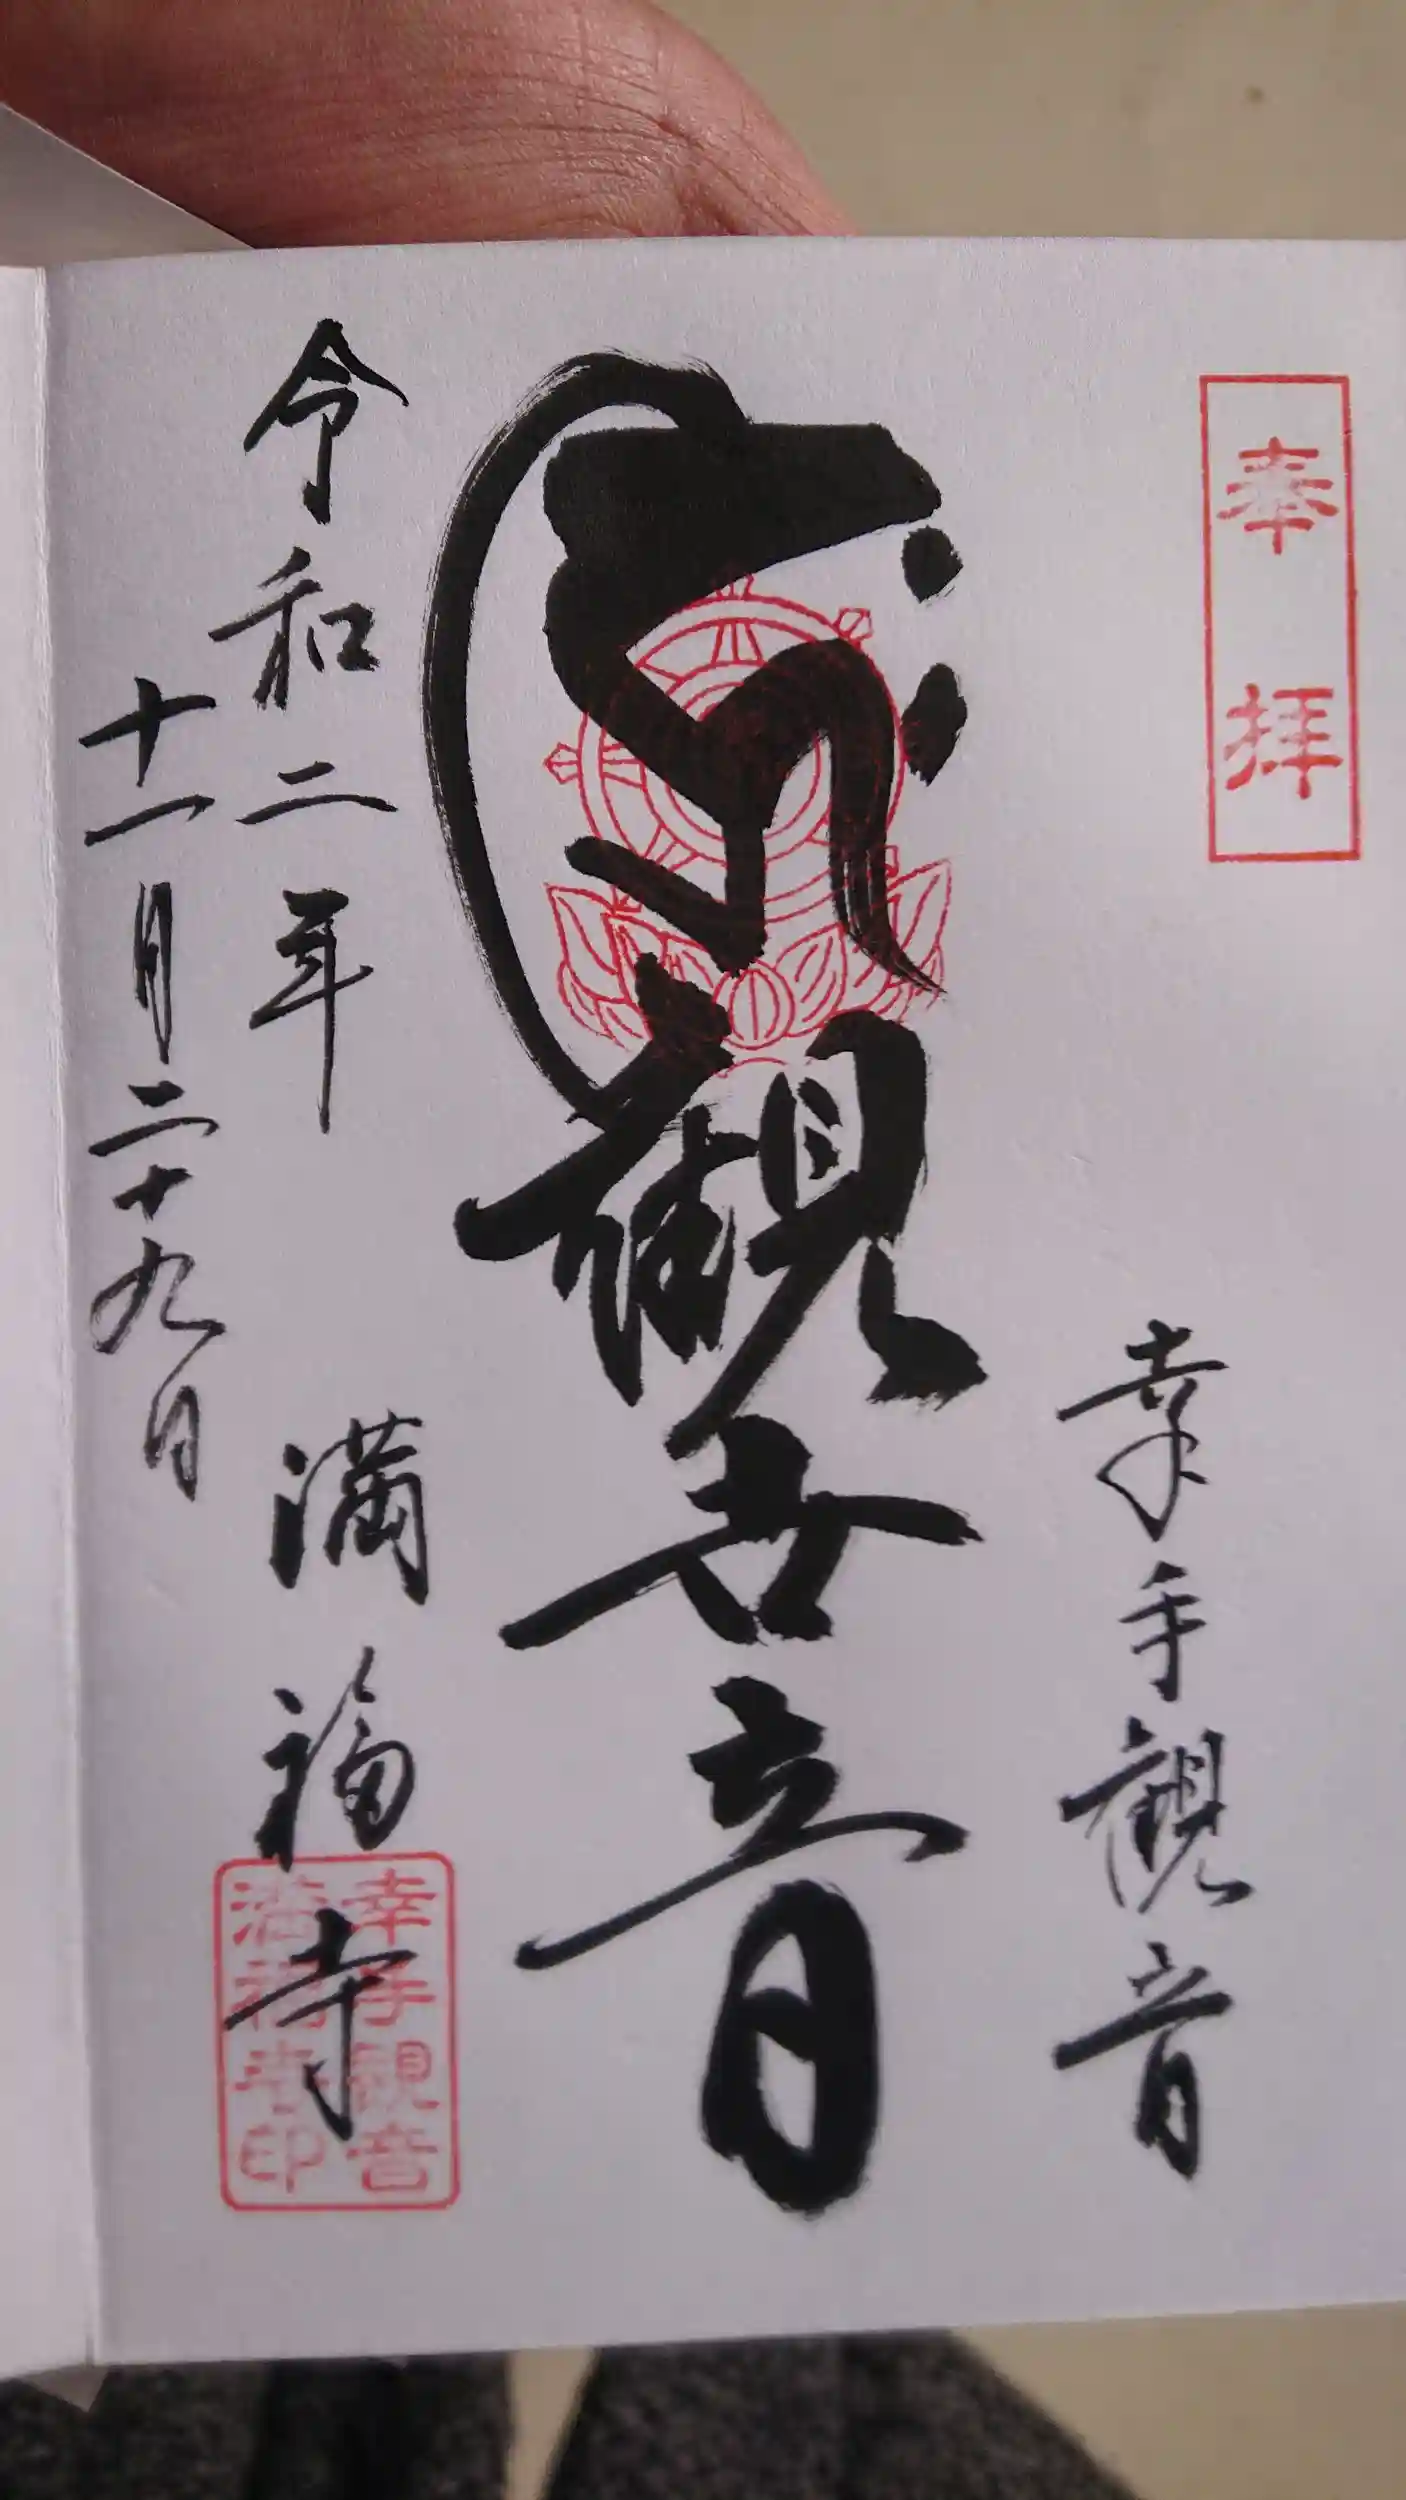 奉拝
幸手観音
観世音
令和二年
十一月二十九日
満福寺
幸手観音
満福寺印